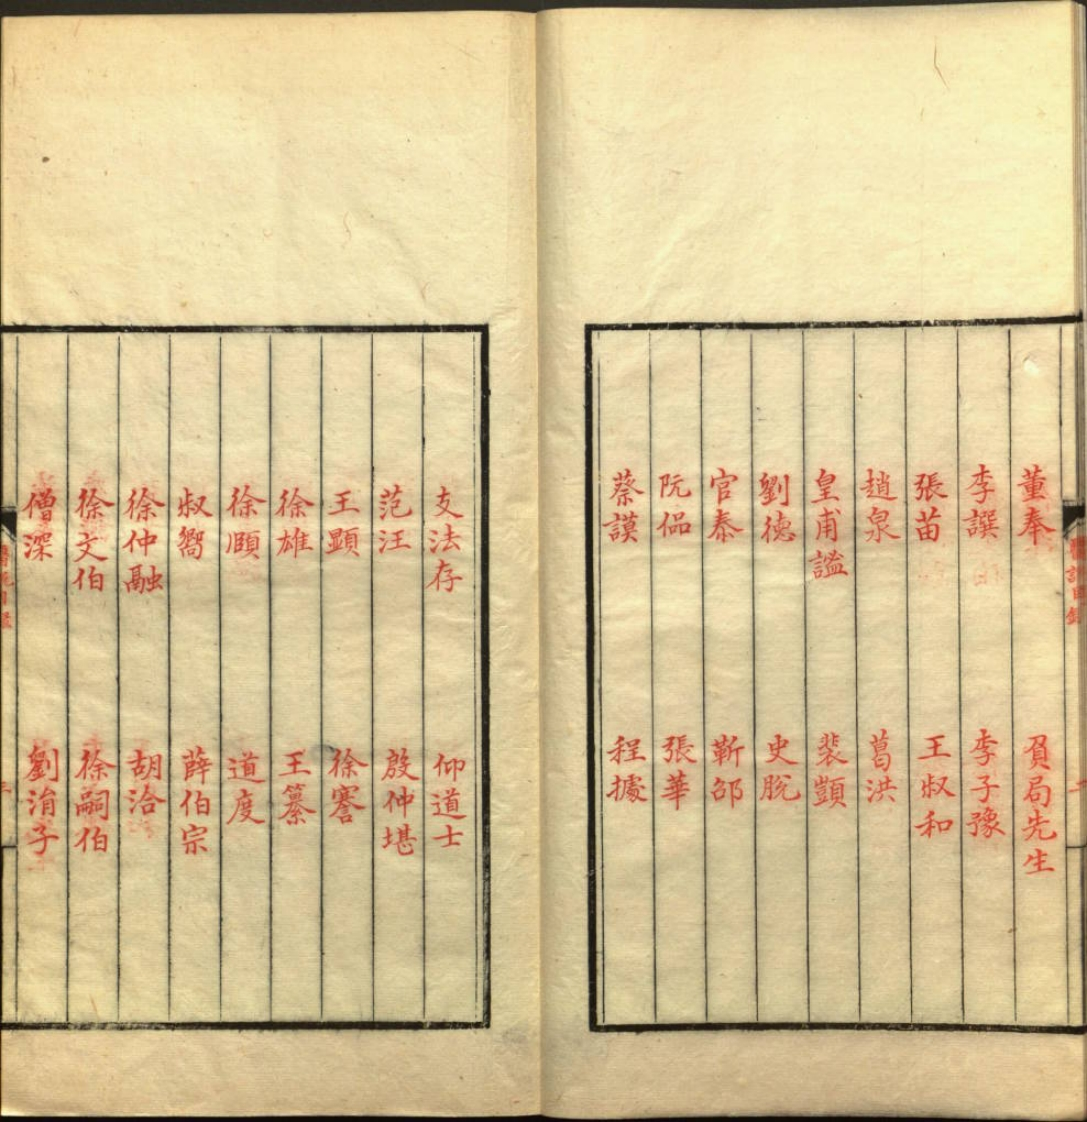 醫說目錄
董奉 貟局先生
李譔 李子豫
張苗 王叔和
趙泉 葛洪
皇甫謐 裴顗
劉德 史脫
官泰 靳邵
阮偘 張華
蔡謨 程據
支法存 仰道士
范汪 殷仲堪
王顯 徐謇
徐雄 王纂
徐 道度
叔嚮 薛伯宗
徐仲融 胡洽
徐文伯 徐嗣伯
僧深 劉涓子